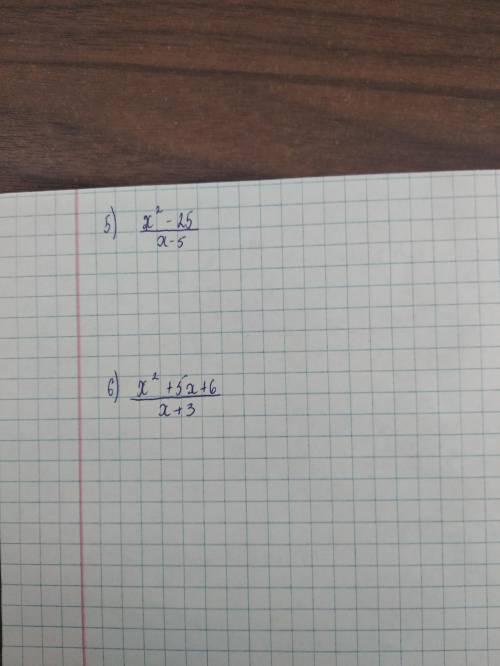 5) x² - 25
x - 5
6) x² + 5x + 6
x + 3